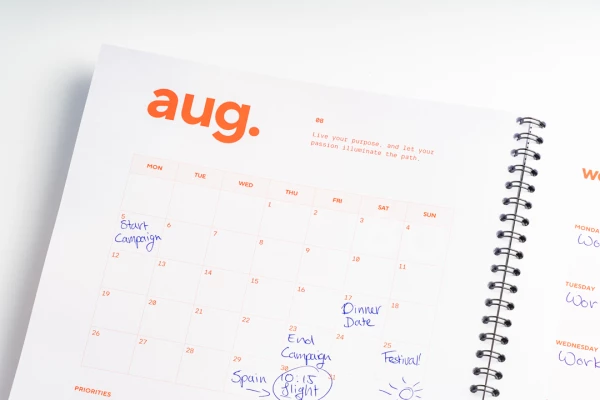 aug.
08
Live your purpose, and let your
passion illuminate the path.
MON TUE WED THU FRI SAT SUN
1 2 3 4
5 6 7 8 9 10 11
Start
Campaign
12 13 14 15 16 17 18
Dinner
Date
19 20 21 22 23 24 25
End
Campaign
Festival
26 27 28 29 30 31
Spain → 10:15
flight
PRIORITIES
MONDAY
Wo
TUESDAY
Wor
WEDNESDAY
Work